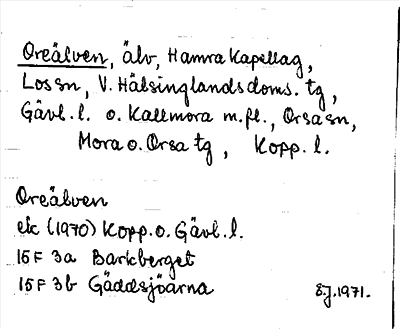 Oreälven, älv, Hamra Kapellag,
Los sn, V. Hälsinglands doms. tg,
Gävl. l. o. Kallmora m.fl., Orsa sn,
Mora o. Orsa tg, Kopp. l.
Oreälven
ek (1970) Kopp. o. Gävl. l.
15 F 3a Barkberget
15 F 3b Gäddsjöarna
S.J. 1971.